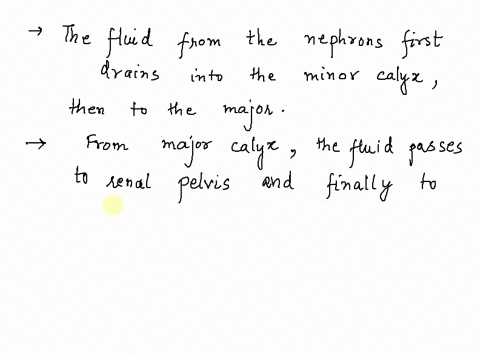 → The fluid from the nephrons first
drains into the minor calyx,
then to the major.
→ From major calyx, the fluid passes
to renal pelvis and finally to